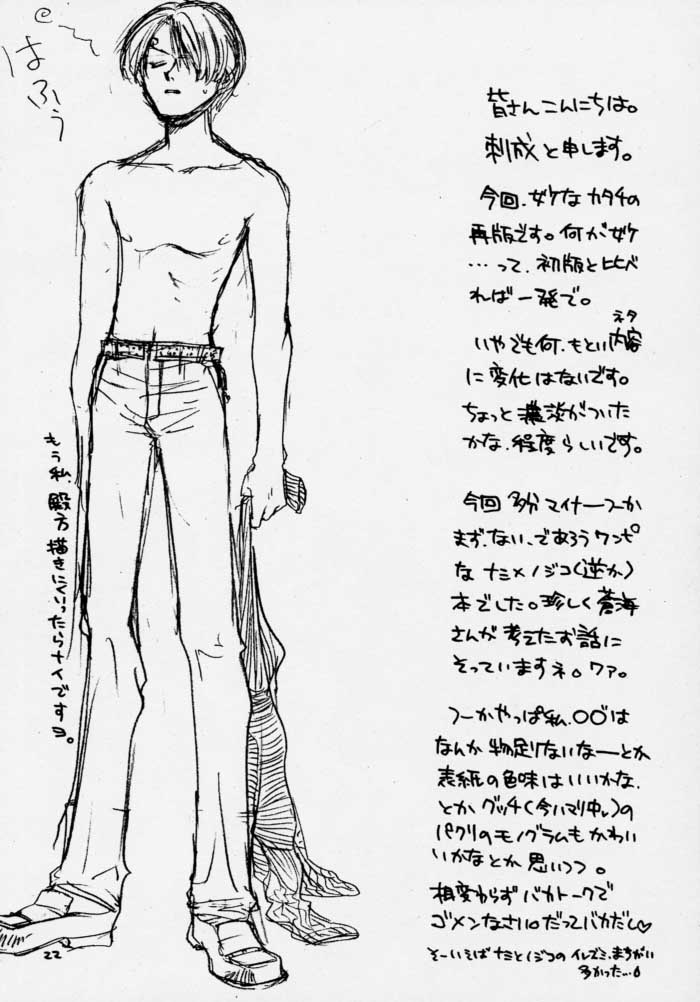 はふぅ
皆さんこんにちは。
刺成と申します。
今回、ザケなカタチの
再版です。何がザケ
…って、初版と比べ
れば一発で。
いやでも何、もとい内容
ネタ
に変化はないです。
ちょっと濃淡がついた
かな、程度らしいです。
今回多分マイナーつーか
まず、ない、であろうワンピ
なナミ×ノジコ(逆か)
本でした。珍しく蒼海
さんが考えたお話に
そっていますネ。ワァ。
つーかやっぱ私、〇〇は
なんか物足りないなーとか
表紙の色味はいいかな、
とかグッチ(今ハマり中)の
パクリのモノグラムもかわい
いかなとか思いつつ。
相変わらずバカトークで
ゴメンなさい。だってバカだし♡
そーいえばナミとノジコのイレズミ、まちがい
多かった…
もう私、殿方描きにくいったらナイですヨ。
22